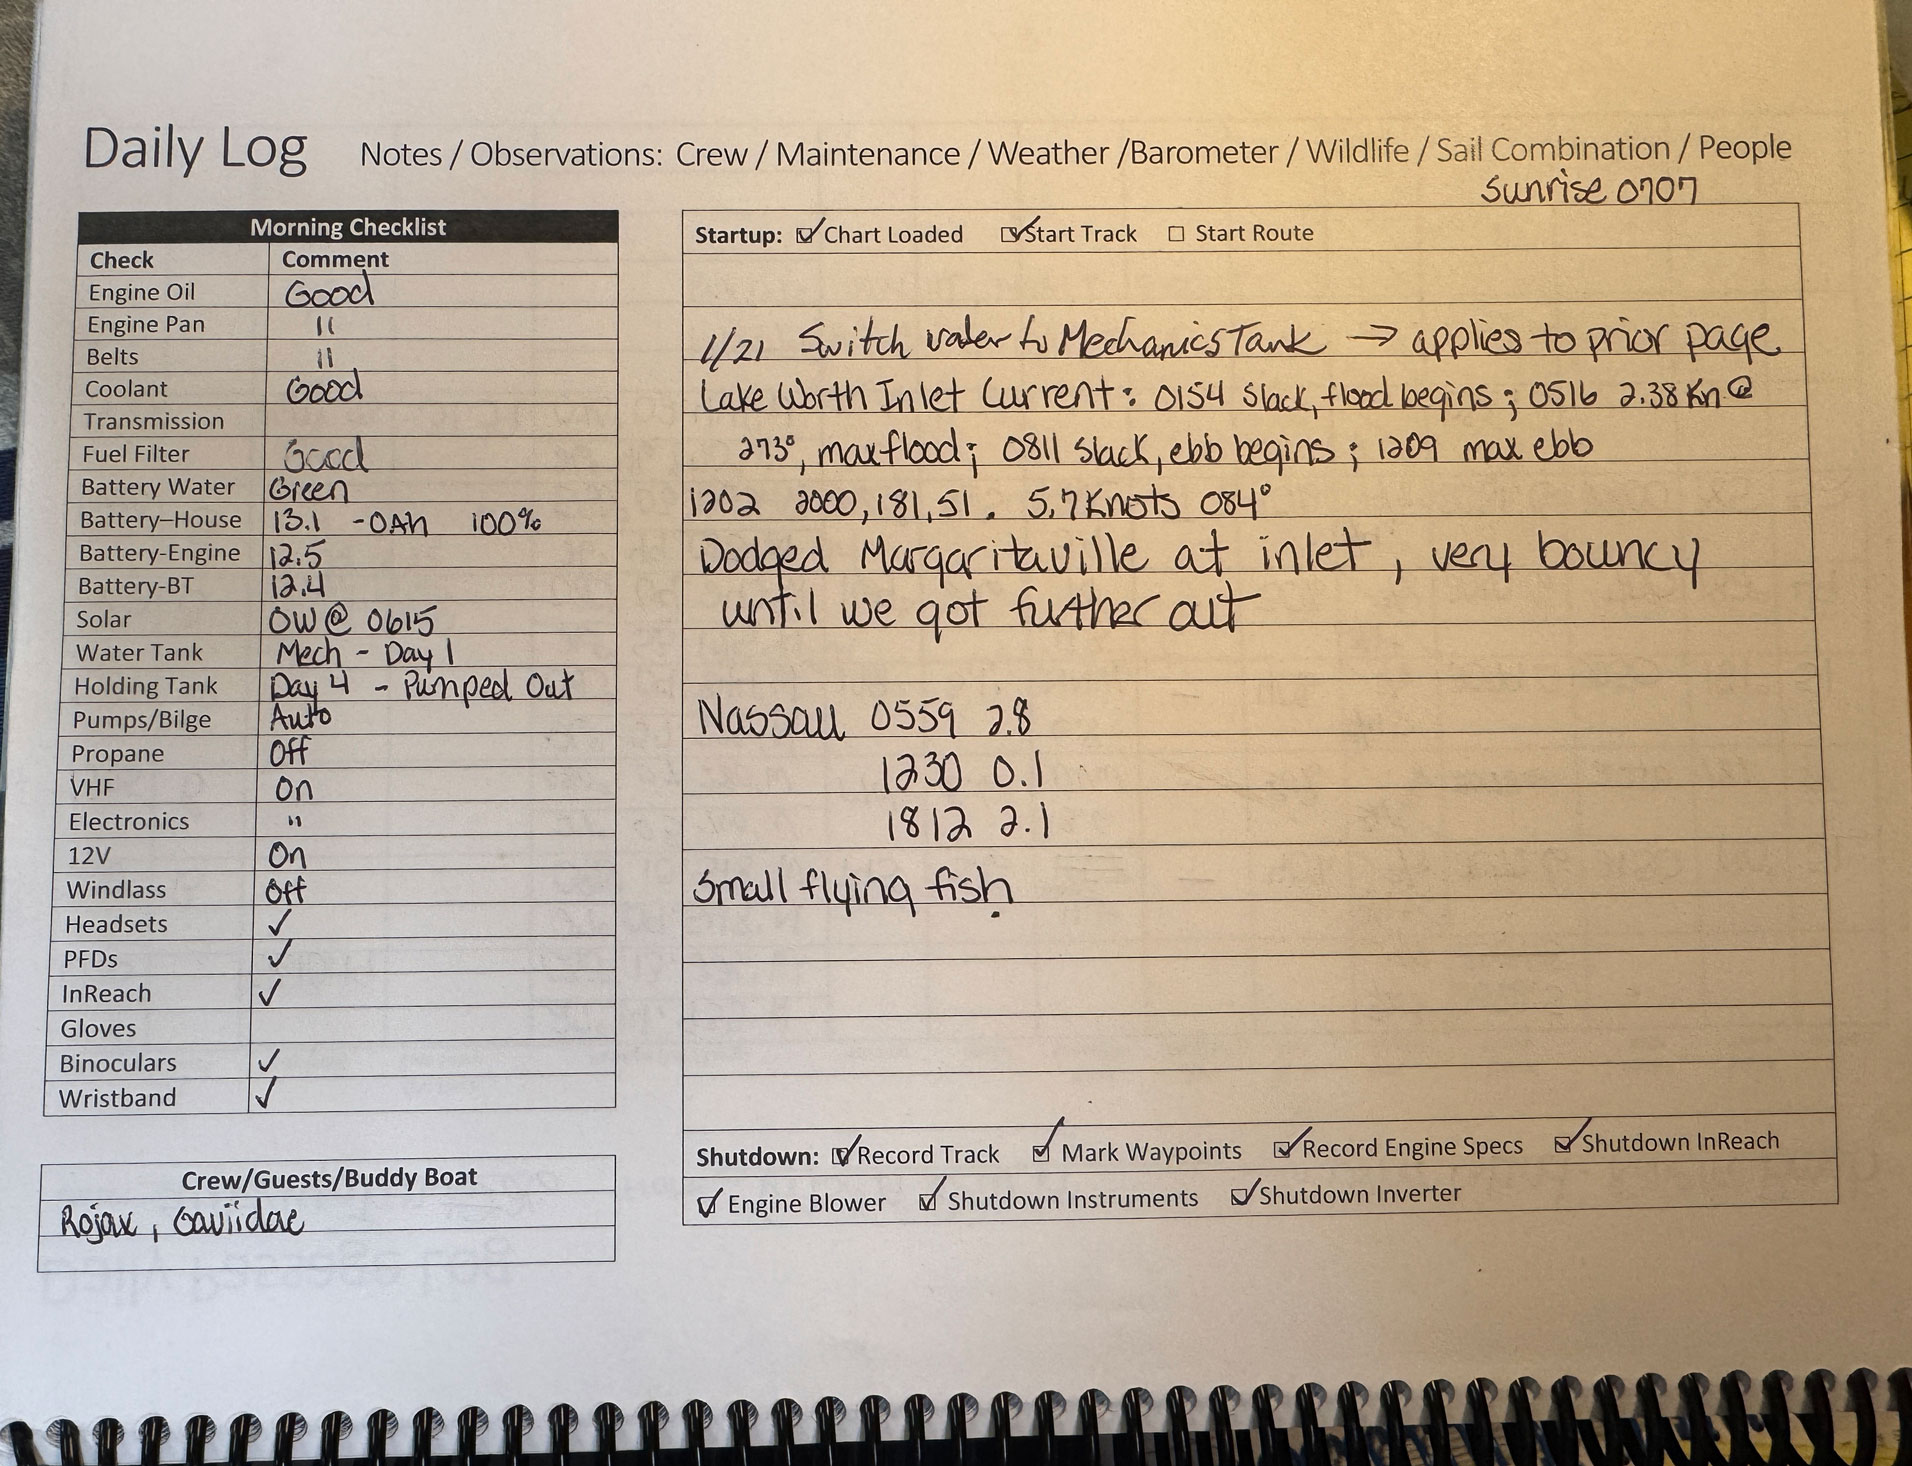 Daily Log Notes / Observations: Crew / Maintenance / Weather /Barometer / Wildlife / Sail Combination / People
Sunrise 0707
Morning Checklist
Check Comment
Engine Oil Good
Engine Pan "
Belts "
Coolant Good
Transmission
Fuel Filter Good
Battery Water Green
Battery–House 13.1 -0Ah 100%
Battery-Engine 12.5
Battery-BT 12.4
Solar 0W @ 0615
Water Tank Mech - Day 1
Holding Tank Day 4 - Pumped Out
Pumps/Bilge Auto
Propane Off
VHF On
Electronics "
12V On
Windlass Off
Headsets ✓
PFDs ✓
InReach ✓
Gloves
Binoculars ✓
Wristband ✓
Crew/Guests/Buddy Boat
Rojax, Gaviidae
Startup: ☑ Chart Loaded ☑ Start Track ☐ Start Route
1/21 Switch water to Mechanics Tank → applies to prior page
Lake Worth Inlet Current: 0154 slack, flood begins; 0516 2.38 Kn @
273°, max flood; 0811 slack, ebb begins; 1209 max ebb
1202 2000, 181, 51. 5.7 Knots 084°
Dodged Margaritaville at inlet, very bouncy
until we got further out
Nassau 0559 2.8
1230 0.1
1812 2.1
Small flying fish.
Shutdown: ☑ Record Track ☑ Mark Waypoints ☑ Record Engine Specs ☑ Shutdown InReach
☑ Engine Blower ☑ Shutdown Instruments ☑ Shutdown Inverter